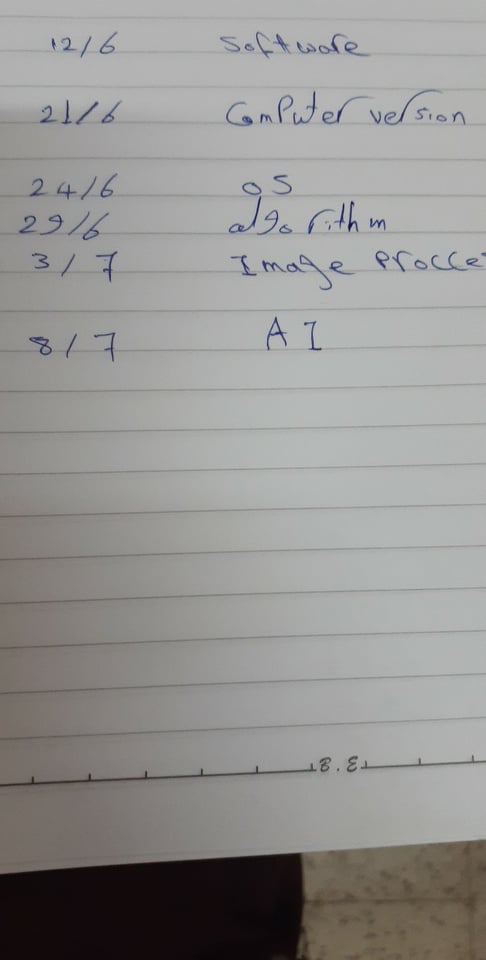 12/6 Software
21/6 Computer version
24/6 OS
29/6 algorithm
3/7 Image Procce
8/7 AI